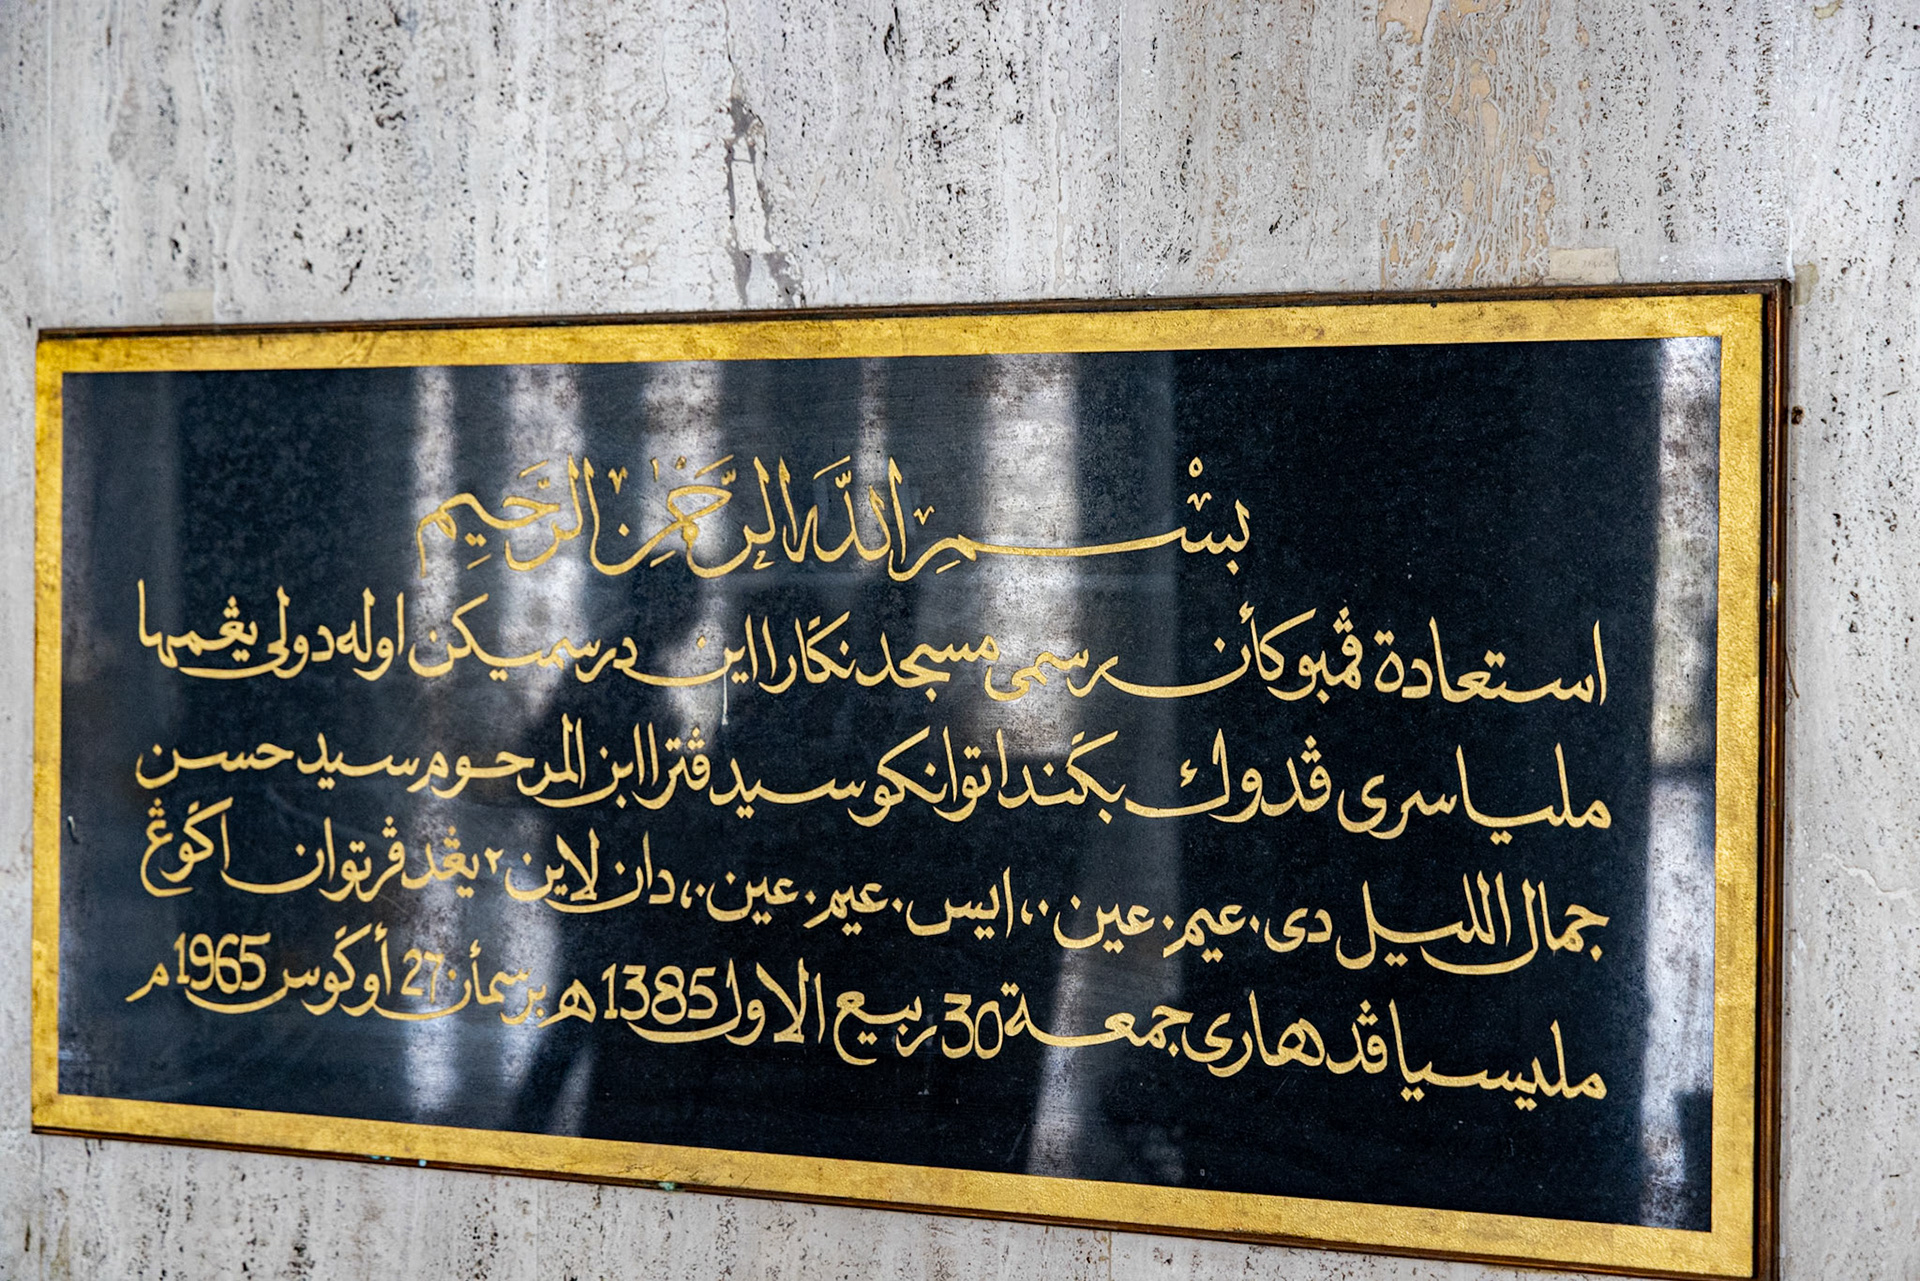 بِسْمِ اللَّهِ الرَّحْمٰنِ الرَّحِيمِ
استعادة ڤمبوكأن رسمى مسجد نݢارا اين درسميكن اوله دولى يڠمها
مليا سرى ڤدوك بݢندا توانكو سيد ڤترا ابن المرحوم سيد حسن
جمال الليل دى.عيم.عين.،، ايس.عيم.عين.،، دان لاين٢ يڠدڤرتوان اݢوڠ
مليسيا ڤد هارى جمعة 30 ربيع الاول 1385 ه برسمأن 27 أوݢوس 1965 م